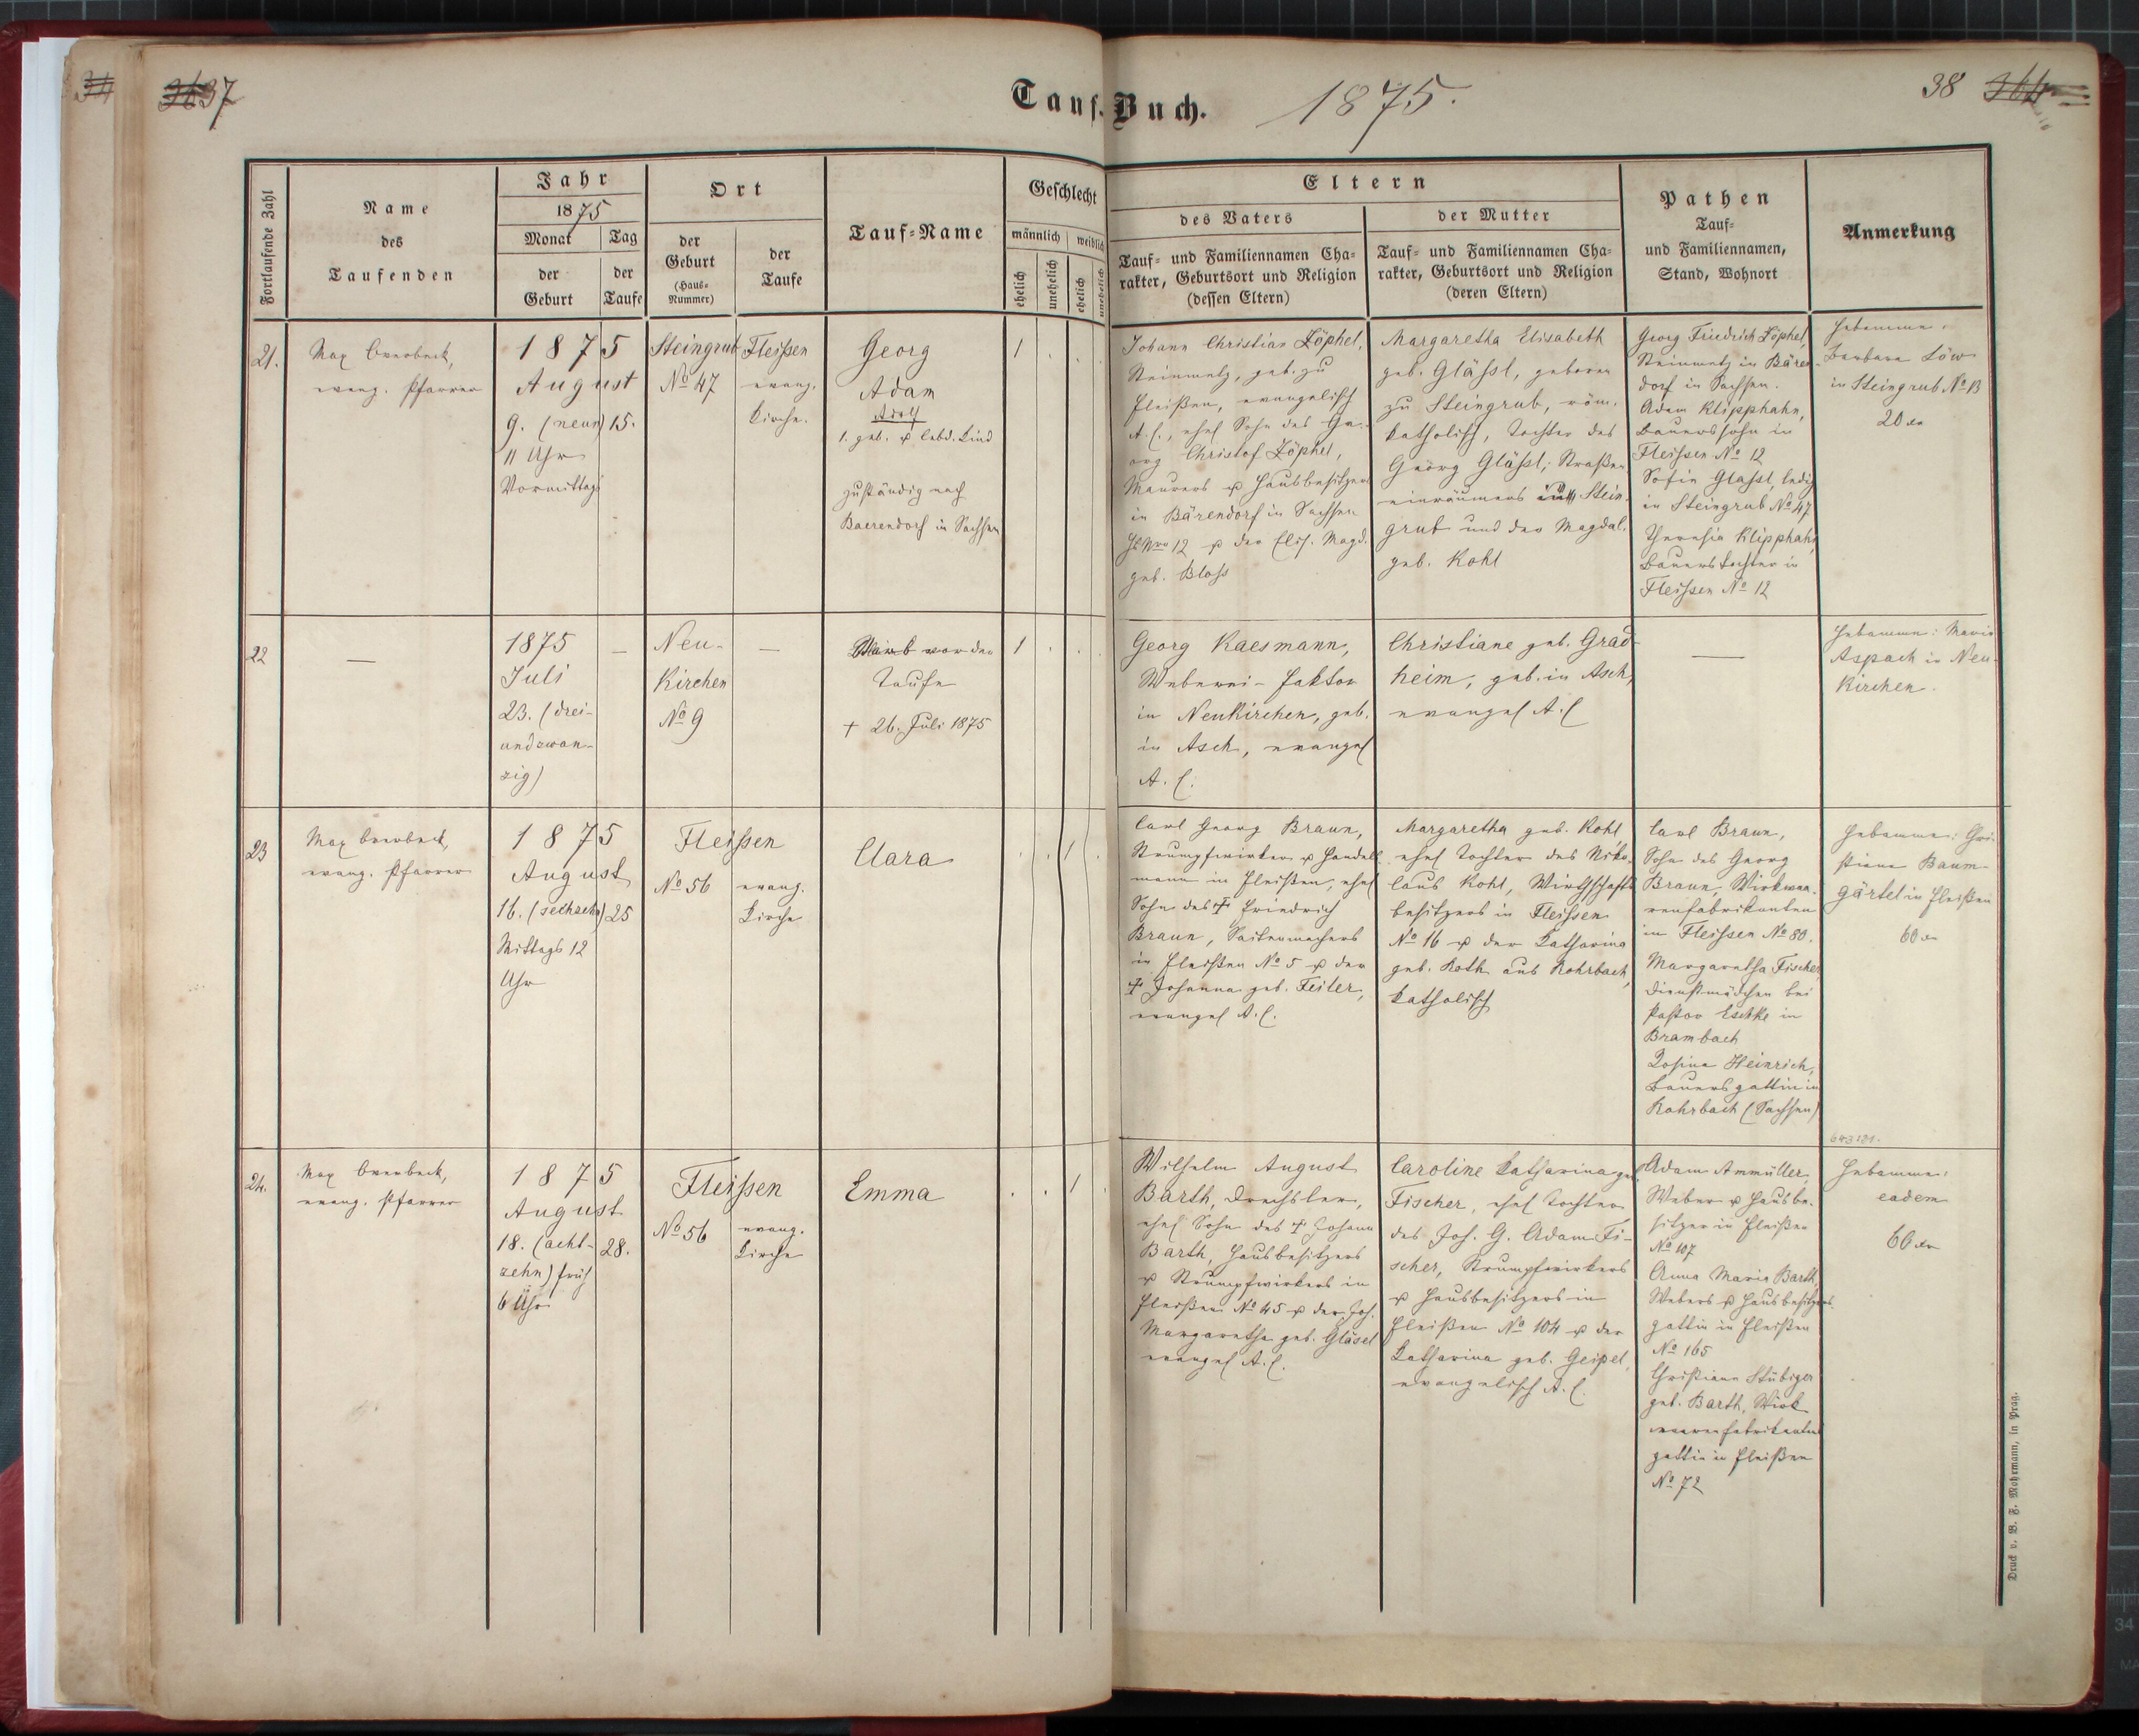 37
Tauf-Buch.
1875.
38
Fortlaufende Zahl
Name
des
Taufenden
Jahr
1875
Monat
Tag
der
Geburt
der
Taufe
Ort
der
Geburt
(Haus-
Nummer)
der
Taufe
Tauf-Name
Geschlecht
männlich
weiblich
ehelich
unehelich
ehelich
unehelich
Eltern
des Vaters
Tauf- und Familiennamen Cha-
rakter, Geburtsort und Religion
(dessen Eltern)
der Mutter
Tauf- und Familiennamen Cha-
rakter, Geburtsort und Religion
(deren Eltern)
Pathen
Tauf-
und Familiennamen,
Stand, Wohnort
Anmerkung
21.
Max Overbeck,
evang. Pfarrer
1875
August
9. (neun) 15.
11 Uhr
Vormittags
Steingrub
No 47
Fleissen
evang.
Kirche.
Georg
Adam
1. geb. & lebd. Kind
zuständig nach
Baerendorf in Sachsen
1
Johann Christian Zöphel,
Steinmetz, geb. zu
Fleißen, evangelisch
A. C., ehel Sohn des Ge-
org Christof Zöphel,
Maurers & Hausbesitzers
in Bärendorf in Sachsen
Hs Nro 12 & der Elis. Magd.
geb. Bloss
Margaretha Elisabeth
geb. Glässl, geboren
zu Steingrub, röm.
katholisch, Tochter des
Georg Glässl, Straßen
einräumers in Stein-
grub und der Magdal.
geb. Kohl
Georg Friedrich Zöphel,
Steinmetz in Bären-
dorf in Sachsen.
Adam Klipphahn,
Bauerssohn in
Fleissen No 12
Sofie Glässl, ledig
in Steingrub No 47
Theresia Klipphahn,
Bauerstochter in
Fleissen No 12
Hebamme:
Barbara Löw
in Steingrub No 13
20 xr
22
—
1875
Juli
23. (drei-
undzwan-
zig)
—
Neu-
Kirchen
No 9
—
Starb vor der
Taufe
† 26. Juli 1875
1
Georg Kaesmann,
Weberei-Faktor
in Neukirchen, geb.
in Asch, evangel
A. C.
Christiane geb. Grad-
heim, geb. in Asch,
evangel A. C
—
Hebamme: Maria
Aspach in Neu-
Kirchen.
23
Max Overbeck,
evang. Pfarrer
1875
August
16. (sechzehn) 25
Mittags 12
Uhr
Fleissen
No 56
evang.
Kirche
Clara
1
Carl Georg Braun,
Strumpfwirker & Handels-
mann in Fleißen, ehel
Sohn des † Friedrich
Braun, Saitenmachers
in Fleißen No 5 & der
† Johanna geb. Feiler,
evangel A. C.
Margaretha geb. Kohl
ehel Tochter des Niko-
laus Kohl, Wirthschafts
besitzers in Fleissen
No 16 & der Katharina
geb. Roth aus Rohrbach,
katholisch
Carl Braun,
Sohn des Georg
Braun, Wirkwaa-
renfabrikanten
in Fleissen No 80.
Margaretha Fischer
Dienstmädchen bei
Pastor Eschke in
Brambach
Rosina Heinrich,
Bauersgattin in
Rohrbach (Sachsen)
Hebamme: Chri-
stiane Baum-
gärtel in Fleißen
60 xr
24.
Max Overbeck,
evang. Pfarrer
1875
August
18. (acht-
zehn) früh
6 Uhr
28.
Fleissen
No 56
evang.
Kirche
Emma
1
Wilhelm August
Barth, Drechsler,
ehel Sohn des † Johann
Barth, Hausbesitzers
& Strumpfwirkers in
Fleißen No 45 & der Joh.
Margaretha geb. Gläsel
evangel A. C.
Caroline Katharina geb.
Fischer, ehel Tochter
des Joh. G. Adam Fi-
scher, Strumpfwirkers
& Hausbesitzers in
Fleißen No 104 & der
Katharina geb. Geipel,
evangelisch A. C.
Adam Ammüller,
Weber & Hausbe-
sitzer in Fleißen
No 107
Anna Maria Barth,
Webers & Hausbesitzers
gattin in Fleißen
No 165
Christiane Stübiger
geb. Barth, Wirk-
waarenfabrikanten
gattin in Fleißen
No 72
Hebamme:
eadem
60 xr
Druck v. B. F. Mohrmann, in Prag.
34